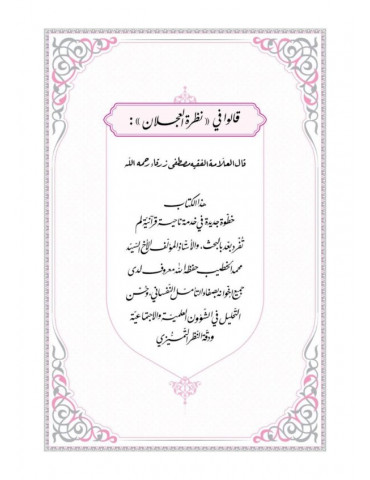 قالوا في «نظرة العجلان»:
قال العلامة الفقيه مصطفى زرقاء رحمه الله
هذا الكتاب
خطوة جديدة في خدمة ناحية قرآنية لم
تُفرد بعد بالبحث، والأستاذ المؤلف الأخ السيد
محمد الخطيب حفظه الله معروف لدى
جميع إخوانه بصفاء التأمل النفساني، وحُسن
التحليل في الشؤون العلمية والاجتماعية
ودقة النظر التمييزي